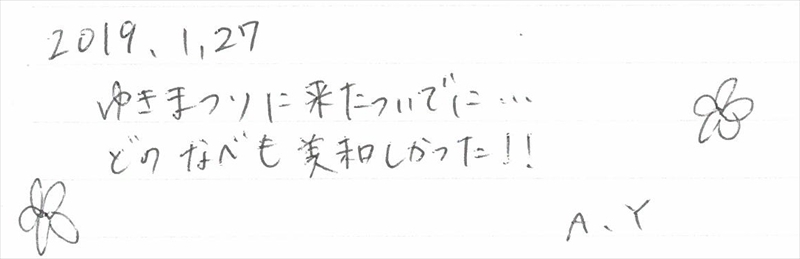 2019、1,27
ゆきまつりに来たついでに…
どのなべも美和しかった!!
A、Y